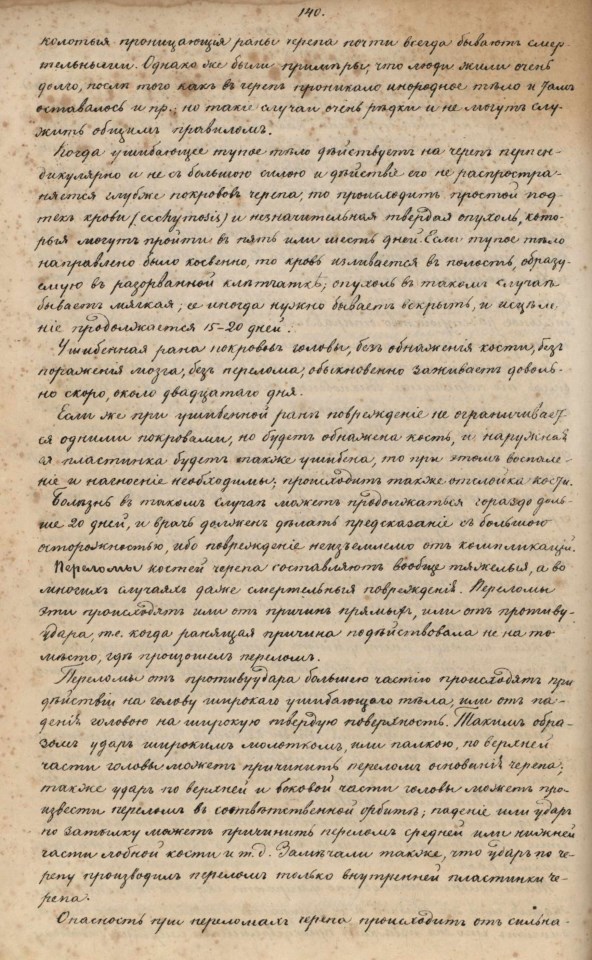 140.
колотыя проницающія раны черепа почти всегда бываютъ смер-
тельными. Однако же были примѣры, что люди жили очень
долго, послѣ того какъ въ черепъ проникало инородное тѣло и тамъ
оставалось и пр.; но такіе случаи очень рѣдки и не могутъ слу-
жить общимъ правиломъ.
Когда ушибающее тупое тѣло дѣйствуетъ на черепъ перпен-
дикулярно и не съ большою силою и дѣйствіе его не распростра-
няется глубже покрововъ черепа, то происходитъ простой под-
текъ крови (ecchytosis) и незначительная твердая опухоль, кото-
рыя могутъ пройти въ пять или шесть дней. Если тупое тѣло
направлено было косвенно, то кровь изливается въ полость, образу-
емую въ разорванной клѣтчаткѣ; опухоль въ такомъ случаѣ
бываетъ мягкая; ее иногда нужно бываетъ вскрыть, и исцѣле-
ніе продолжается 15-20 дней.
Ушибенная рана покрововъ головы, безъ обнаженія кости, безъ
пораженія мозга, безъ перелома, обыкновенно заживаетъ доволь-
но скоро, около двадцатаго дня.
Если же при ушибенной ранѣ поврежденіе не ограничивает
ся одними покровами, но будетъ обнажена кость, и наружна
ая пластинка будетъ также ушибена, то при этомъ воспале-
ніе и нагноеніе необходимы; происходитъ также отслойка кости.
Болѣзнь въ такомъ случаѣ можетъ продолжаться гораздо доль-
ше 20 дней, и врачъ долженъ дѣлать предсказаніе съ большою
осторожностью, ибо поврежденіе неизъемлемо отъ компликацій.
Переломы костей черепа составляютъ вообще тяжелыя, а во
многихъ случаяхъ даже смертельныя поврежденія. Переломы
эти происходятъ или отъ причинъ прямыхъ, или отъ противу-
удара, т.е. когда ранящая причина подѣйствовала не на то
мѣсто, гдѣ произошелъ переломъ.
Переломы отъ противуудара большею частію происходятъ при
дѣйствіи на голову широкаго ушибающаго тѣла, или отъ па-
денія головою на широкую твердую поверхность. Такимъ обра-
зомъ ударъ широкимъ молоткомъ, или палкою, по верхней
части головы можетъ причинить переломъ основанія черепа;
также ударъ по верхней и боковой части головы можетъ про-
извести переломъ въ соотвѣтственной орбитѣ; паденіе или ударъ
по затылку можетъ причинить переломъ средней или нижней
части лобной кости и т.д. Замѣчали также, что ударъ по че-
репу производилъ переломъ только внутренней пластинки че-
репа.
Опасность при переломахъ черепа происходитъ отъ сильна-